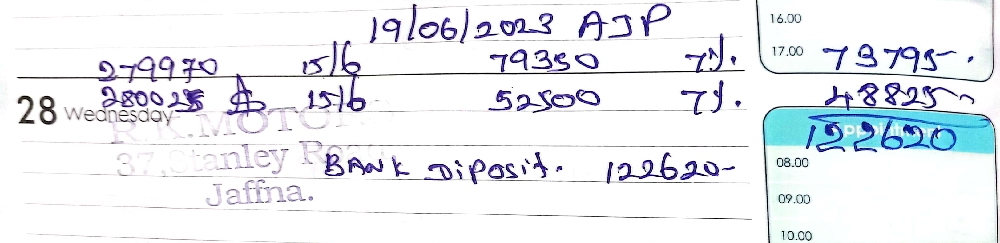 19/06/2023 AJP
16.00
279970 15/6 79350 7%. 17.00 73795-.
280025 15/6 52500 7%. 48825-
28 Wednesday
R.K.MOTO
122620
37, Stanley R
BANK Diposit. 122620-
08.00
Jaffna.
09.00
10.00